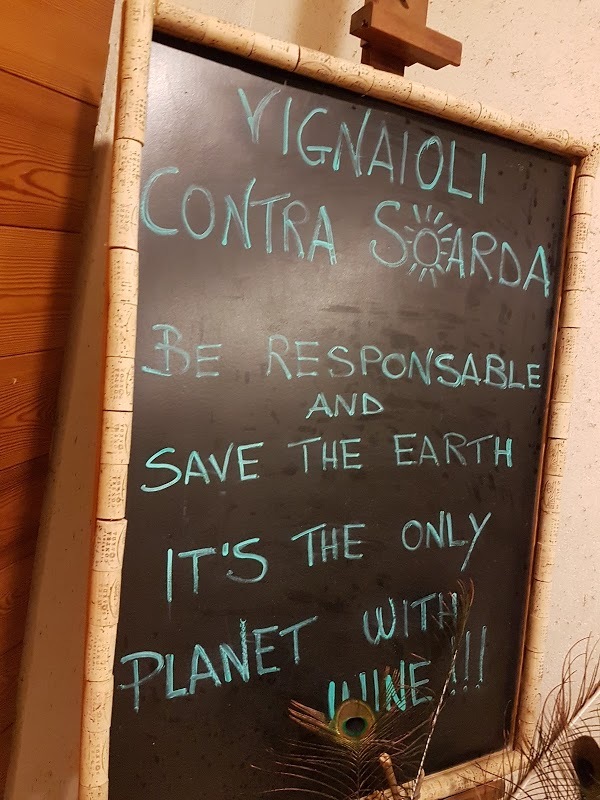 VIGNAIOLI
CONTRA SOARDA
BE RESPONSABLE
AND
SAVE THE EARTH
IT'S THE ONLY
PLANET WITH
WINE!!!